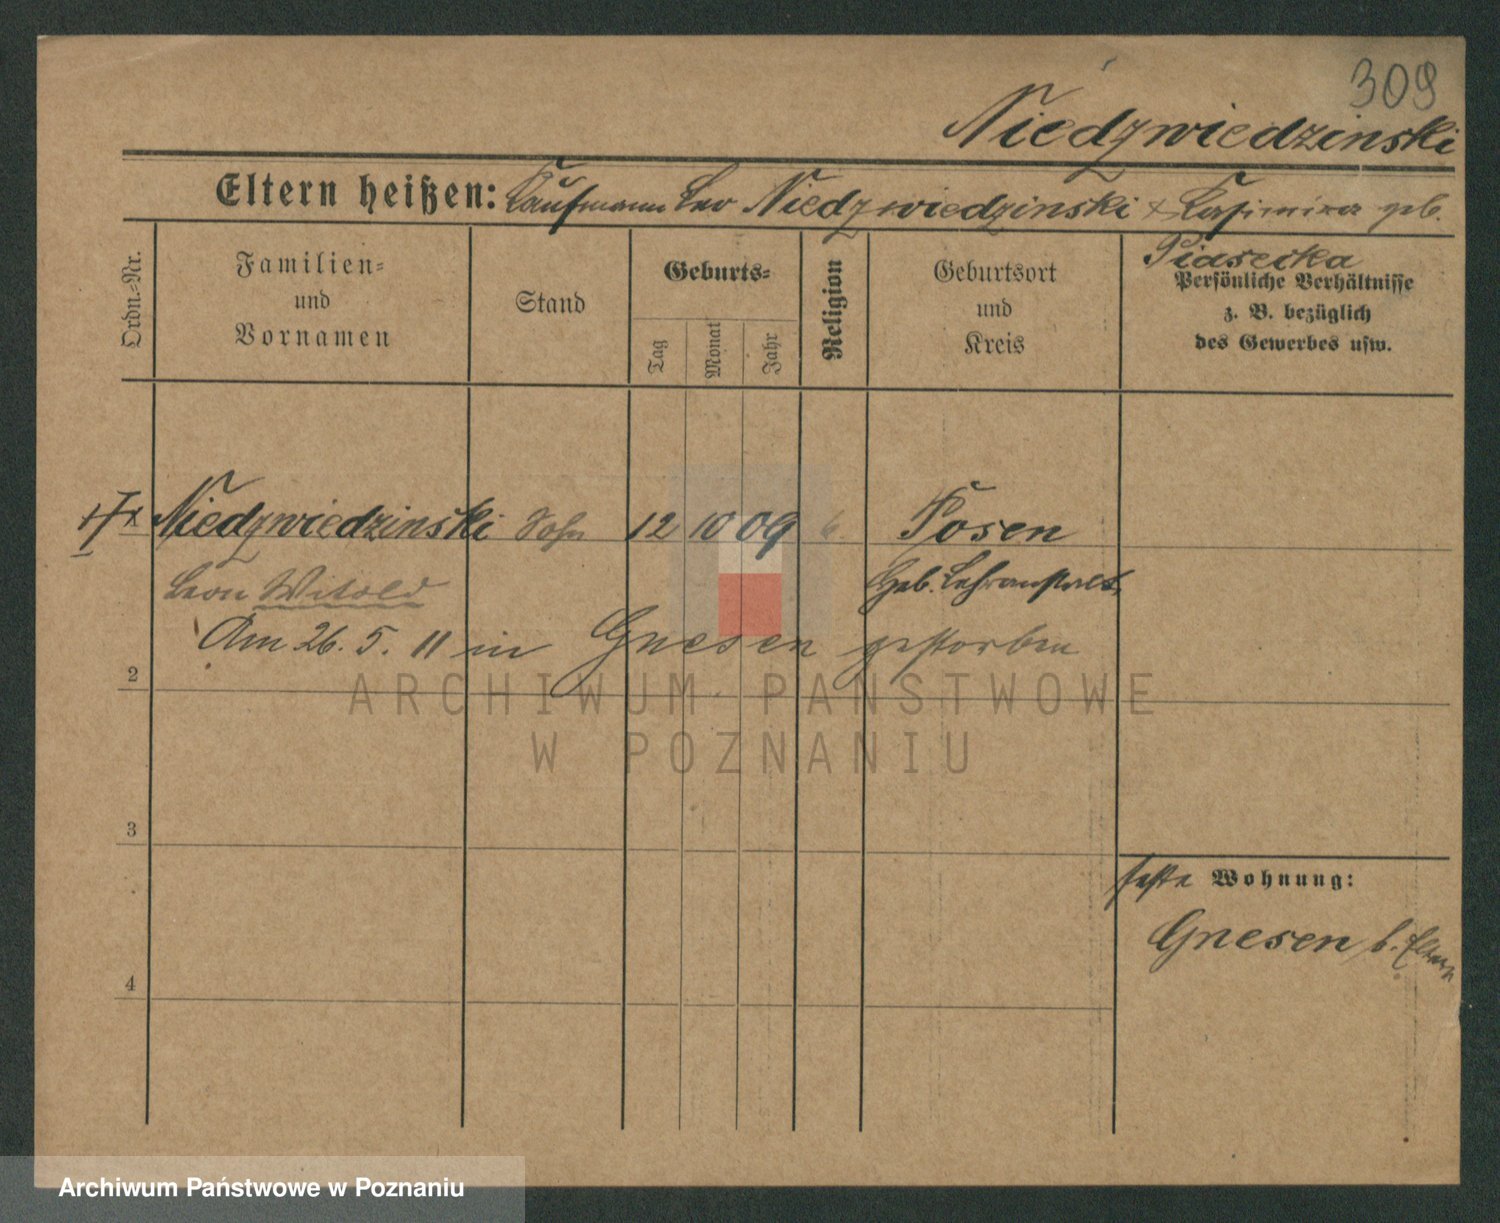 309
Niedzwiedzinski
Eltern heißen: Kaufmann Leo Niedzwiedzinski & Kasimira geb.
Piasecka
Ordn.-Nr.
Familien-
und
Vornamen
Stand
Geburts-
Tag
Monat
Jahr
Religion
Geburtsort
und
Kreis
Persönliche Verhältnisse
z. B. bezüglich
des Gewerbes usw.
Niedzwiedzinski Sohn 12 10 09 k. Posen
Leon Witold Geb. Lehranstalt
Am 26. 5. 11 in Gnesen gestorben
2
ARCHIWUM PAŃSTWOWE
W POZNANIU
3
Wohnung:
Gnesen b. Eltern
4
Archiwum Państwowe w Poznaniu